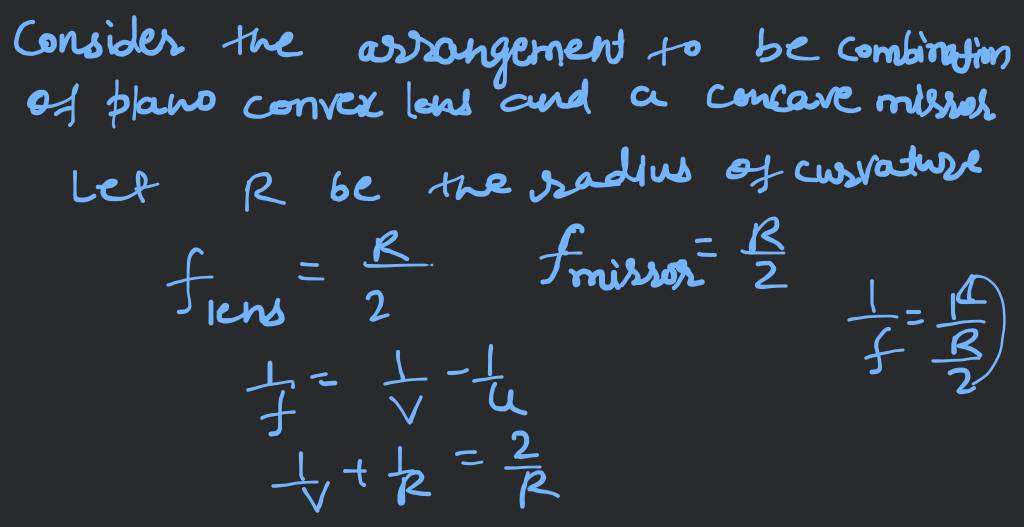 Consider the arrangement to be combination
of plano convex lens and a concave mirror
Let R be the radius of curvature
f lens = R/2 f mirror = R/2
1/f = 1/(R/2)
1/f = 1/v - 1/u
1/v + 1/R = 2/R